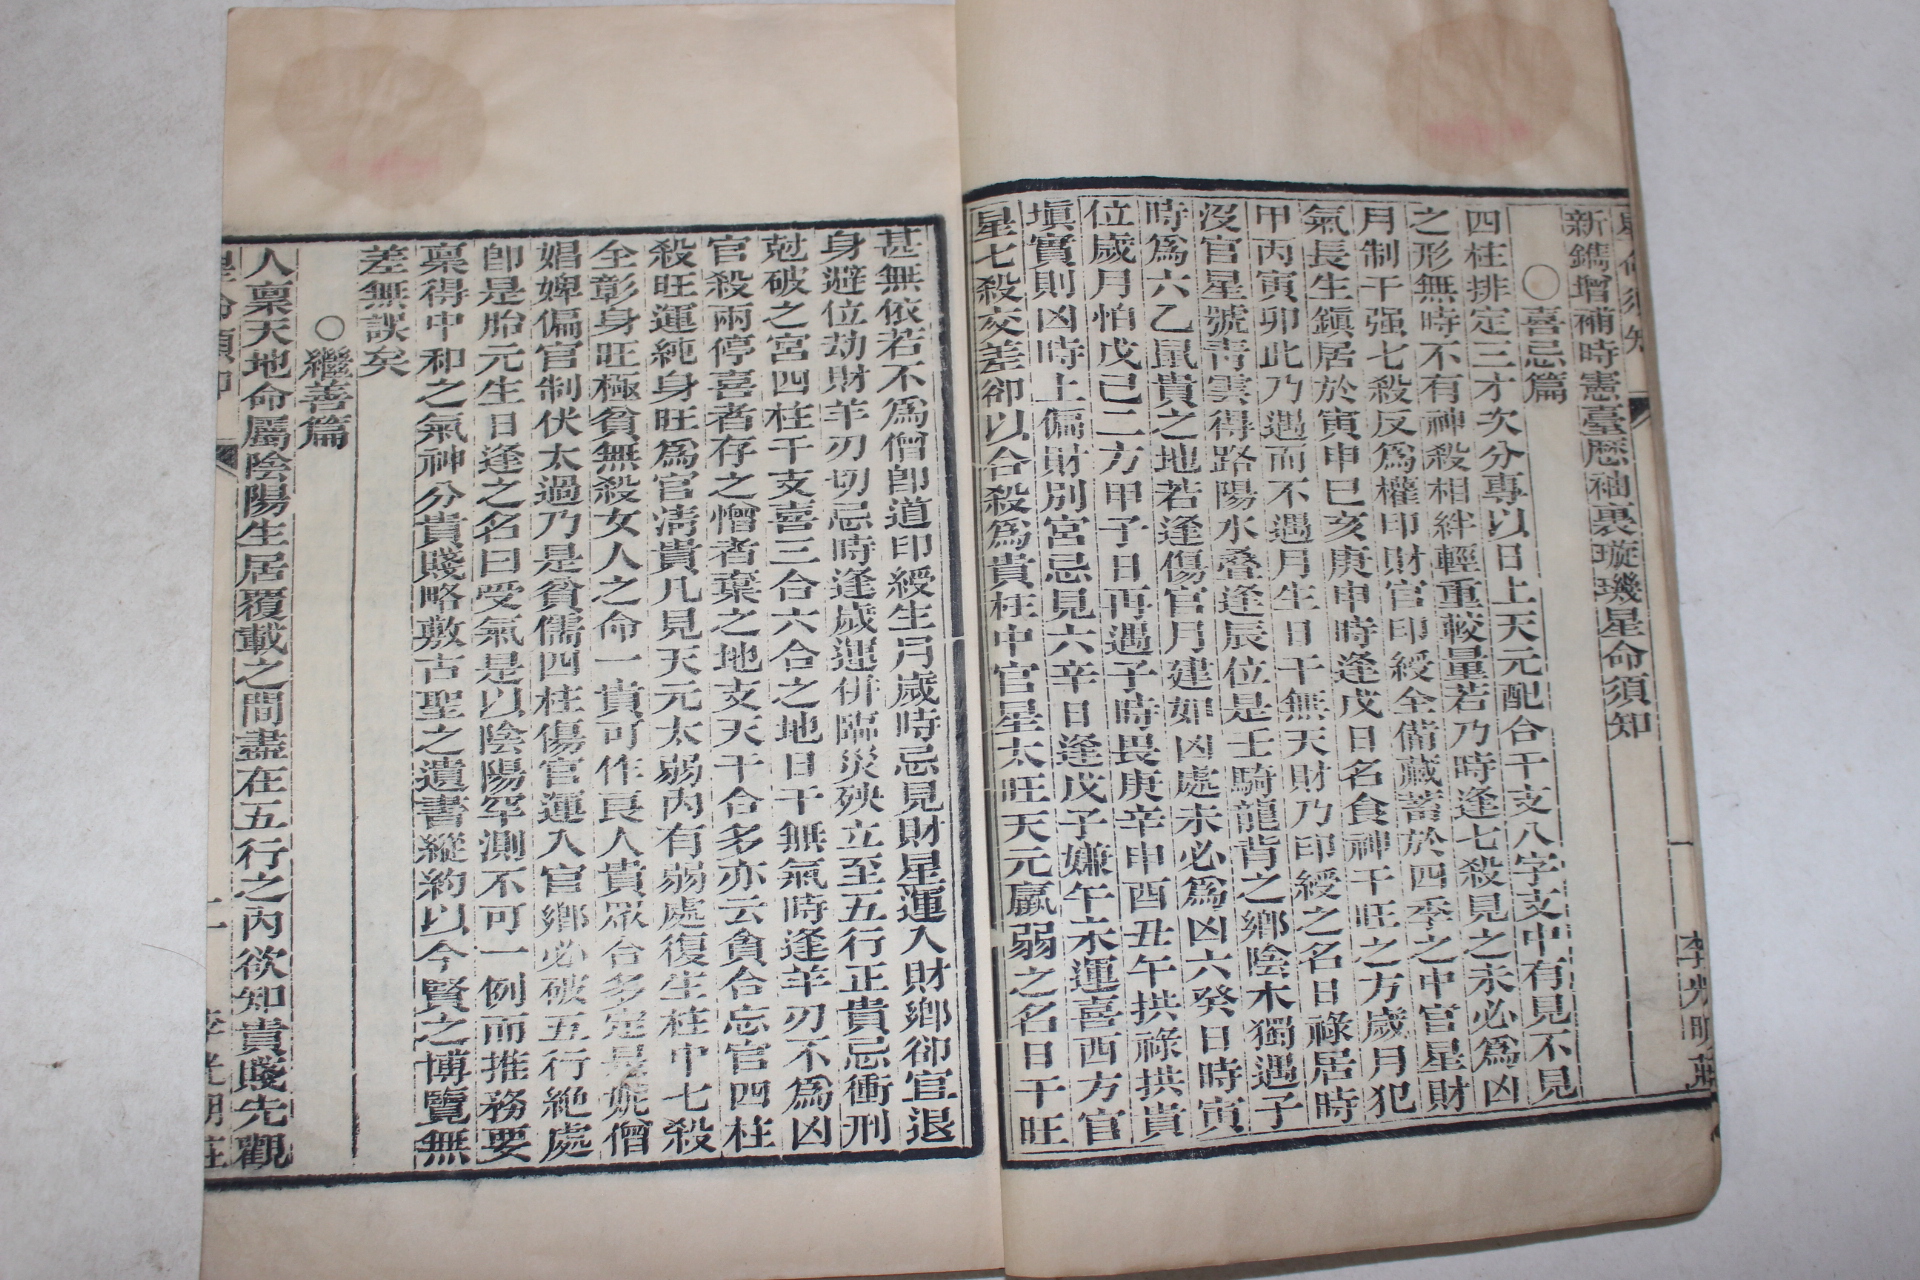 新鐫增補時憲臺曆袖裏璇璣星命須知
○喜忌篇
四柱排定三才次分專以日上天元配合干支八字支中有見不見
之形無時不有神殺相絆輕重較量若乃時逢七殺見之未必爲凶
月制干强七殺反爲權印財官印綬全備藏蓄於四季之中官星財
氣長生鎮居於寅申巳亥庚申時逢戊日名食神干旺之方歲月犯
甲丙寅卯此乃遇而不遇月生日干無天財乃印綬之名日祿居時
沒官星號青雲得路陽水叠逢辰位是壬騎龍背之鄉陰木獨遇子
時爲六乙鼠貴之地若逢傷官月建如凶處未必爲凶六癸日時寅
位歲月怕戊己二方甲子日再遇子時畏庚辛申酉丑午拱祿拱貴
塡實則凶時上偏財別宮忌見六辛日逢戊子嫌午木運喜西方官
星七殺交差卻以合殺爲貴柱中官星太旺天元羸弱之名日干旺
甚無依若不爲僧卽道印綬生月歲時忌見財星運入財鄉卻宜退
身避位劫財羊刃切忌時逢歲運併臨災殃立至五行正貴忌衝刑
尅破之宮四柱干支喜三合六合之地日干無氣時逢羊刃不爲凶
官殺兩停喜者存之憎者棄之地支天干合多亦云貪合忘官四柱
殺旺運純身旺爲官淸貴凡見天元太弱內有弱處復生柱中七殺
全彰身旺極貧無殺女人之命一貴可作良人貴眾合多定是妮僧
娼婢偏官制伏太過乃是貧儒四柱傷官運入官鄉必破五行絶處
卽是胎元生日逢之名曰受氣是以陰陽罕測不可一例而推務要
稟得中和之氣神分貴賤略敷古聖之遺書縱約以今賢之博覽無
差無誤矣
○繼善篇
人稟天地命屬陰陽生居覆載之間盡在五行之內欲知貴賤先觀